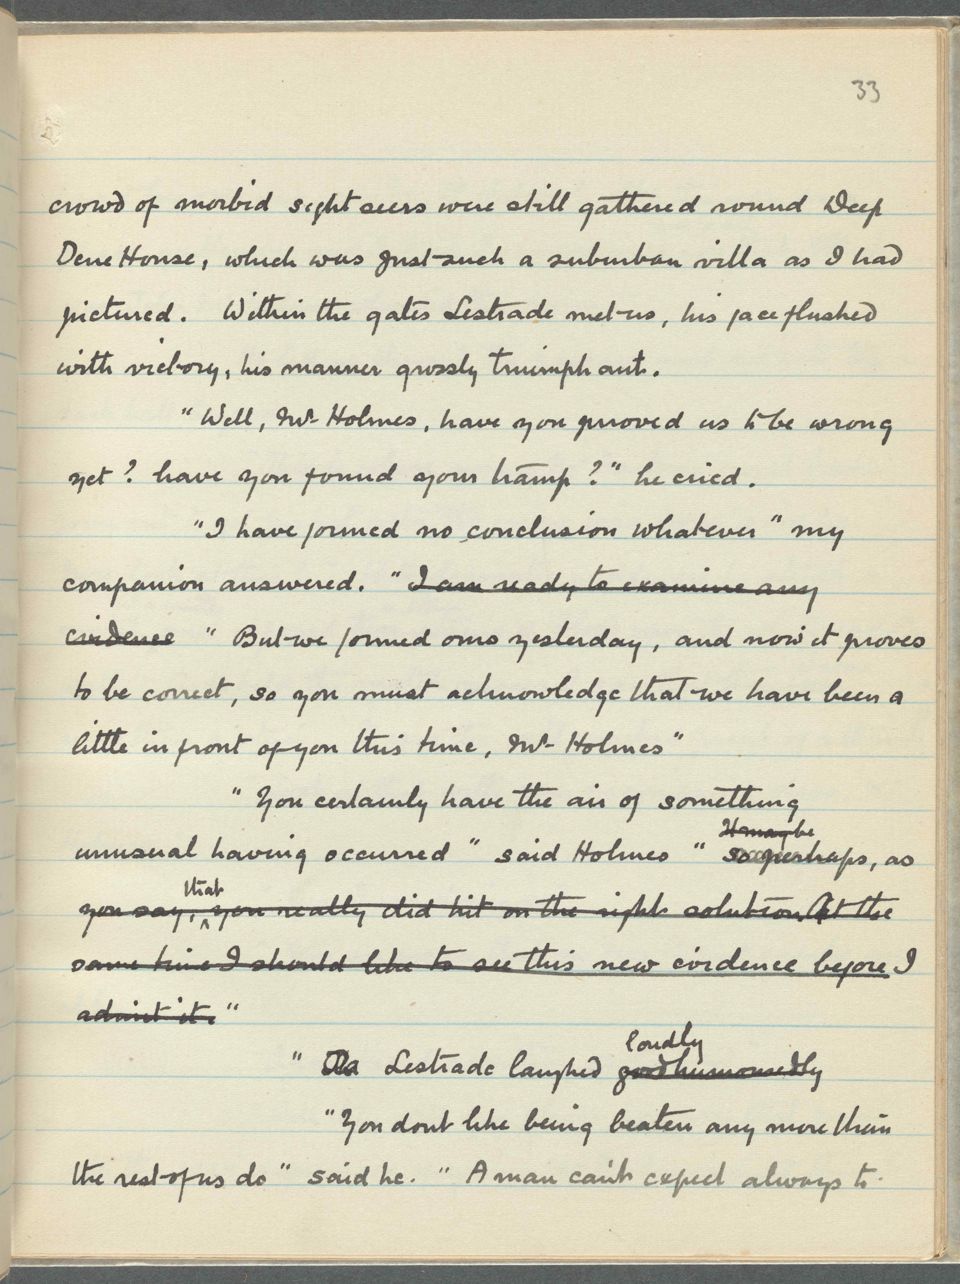 33
crowd of morbid sightseers were still gathered round Deep
Dene House, which was just such a suburban villa as I had
pictured. Within the gates Lestrade met us, his face flushed
with victory, his manner grossly triumphant.
"Well, Mr Holmes, have you proved us to be wrong
yet? have you found your tramp?" he cried.
"I have formed no conclusion whatever" my
companion answered. "I am ready to examine any
evidence " But we formed ours yesterday, and now it proves
to be correct, so you must acknowledge that we have been a
little in front of you this time, Mr Holmes"
"You certainly have the air of something
It may be
unusual having occurred" said Holmes " so perhaps, as
that
you say, ^ you really did hit on the right solution. At the
same time I should like to see this new evidence before I
admit it."
loudly
" Lestrade laughed good humouredly
"You dont like being beaten any more than
the rest of us do" said he. "A man can't expect always to